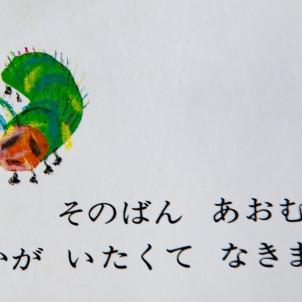 そのばん あおむ
かが いたくて なきま